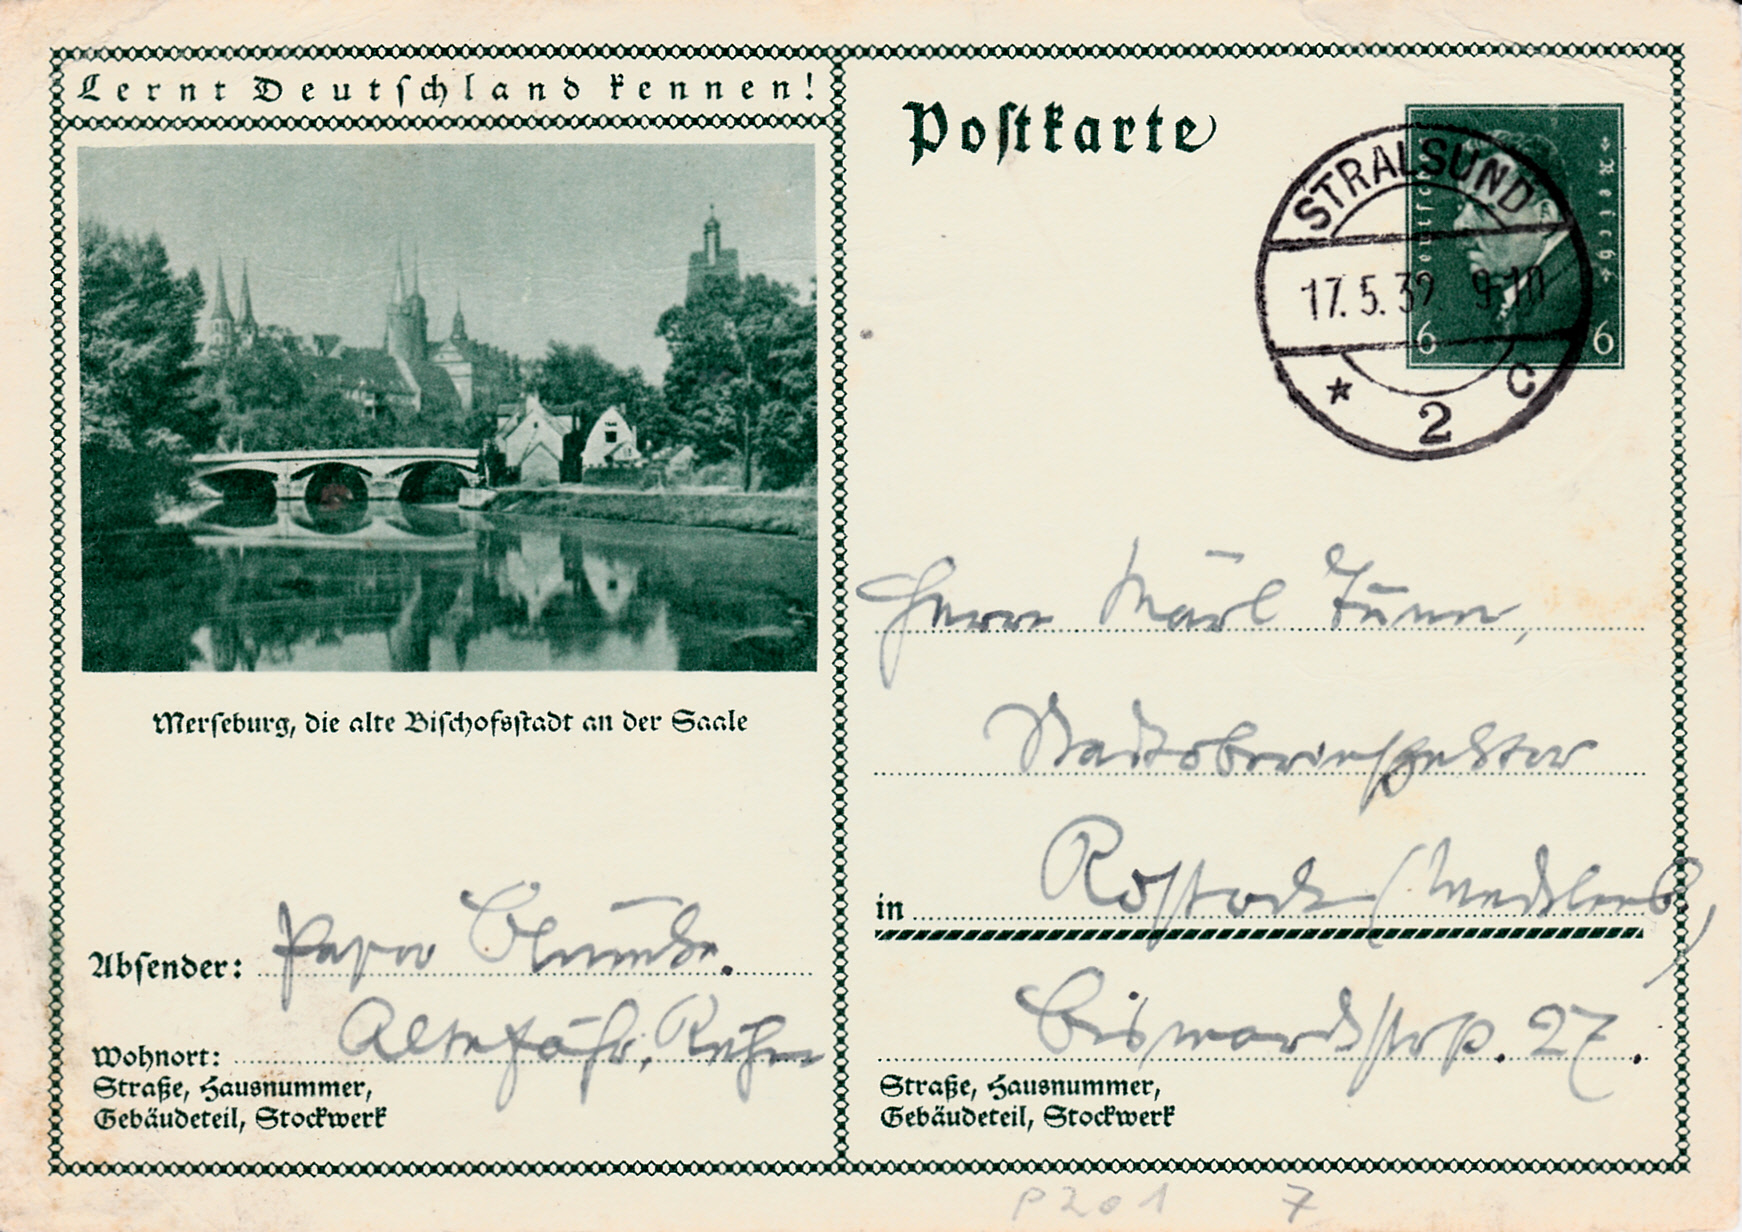 Lernt Deutschland kennen!
Postkarte
Deutsches Reich
6 6
STRALSUND
17.5.32 9-10
* 2 c
Merseburg, die alte Bischofsstadt an der Saale
Herrn Karl
Stadtoberinspektor
in Rostock (Mecklenb),
Bismarckstrß. 27.
Straße, Hausnummer,
Gebäudeteil, Stockwerk
Absender:
Wohnort: Altefähr, Rügen
Straße, Hausnummer,
Gebäudeteil, Stockwerk
P201 7